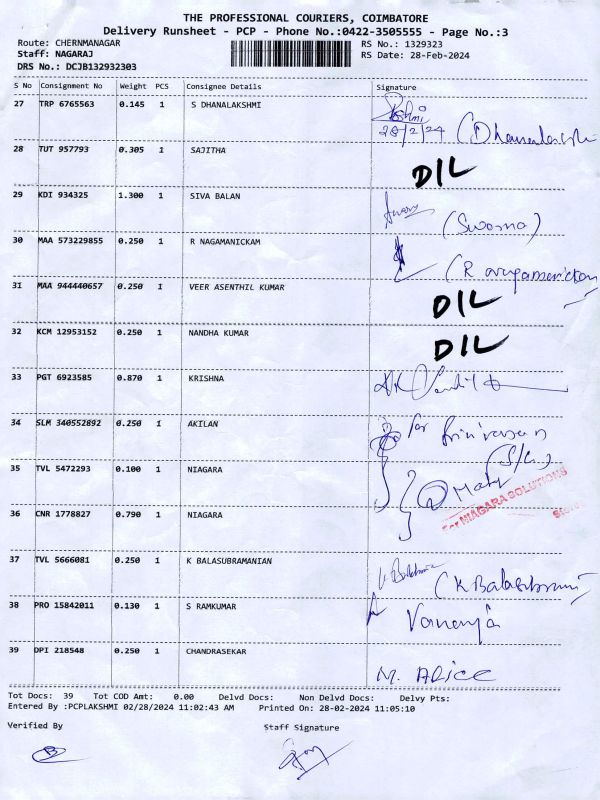 THE PROFESSIONAL COURIERS, COIMBATORE
Delivery Runsheet - PCP - Phone No.:0422-3505555 - Page No.:3
Route: CHERNMANAGAR RS No.: 1329323
Staff: NAGARAJ RS Date: 28-Feb-2024
DRS No.: DCJB132932303
S No Consignment No Weight PCS Consignee Details Signature
27 TRP 6765563 0.145 1 S DHANALAKSHMI
28/2/24
28 TUT 957793 0.305 1 SAJITHA
D/L
29 KDI 934325 1.300 1 SIVA BALAN
30 MAA 573229855 0.250 1 R NAGAMANICKAM
31 MAA 944440657 0.250 1 VEER ASENTHIL KUMAR
D/L
32 KCM 12953152 0.250 1 NANDHA KUMAR
D/L
33 PGT 6923585 0.870 1 KRISHNA
34 SLM 340552892 0.250 1 AKILAN
for Srinivasan
(S/G)
35 TVL 5472293 0.100 1 NIAGARA
For NIAGARA SOLUTIONS
36 CNR 1778827 0.790 1 NIAGARA
37 TVL 5666081 0.250 1 K BALASUBRAMANIAN
38 PRO 15842011 0.130 1 S RAMKUMAR
39 DPI 218548 0.250 1 CHANDRASEKAR
M. ALICE
Tot Docs: 39 Tot COD Amt: 0.00 Delvd Docs: Non Delvd Docs: Delvy Pts:
Entered By :PCPLAKSHMI 02/28/2024 11:02:43 AM Printed On: 28-02-2024 11:05:10
Verified By Staff Signature